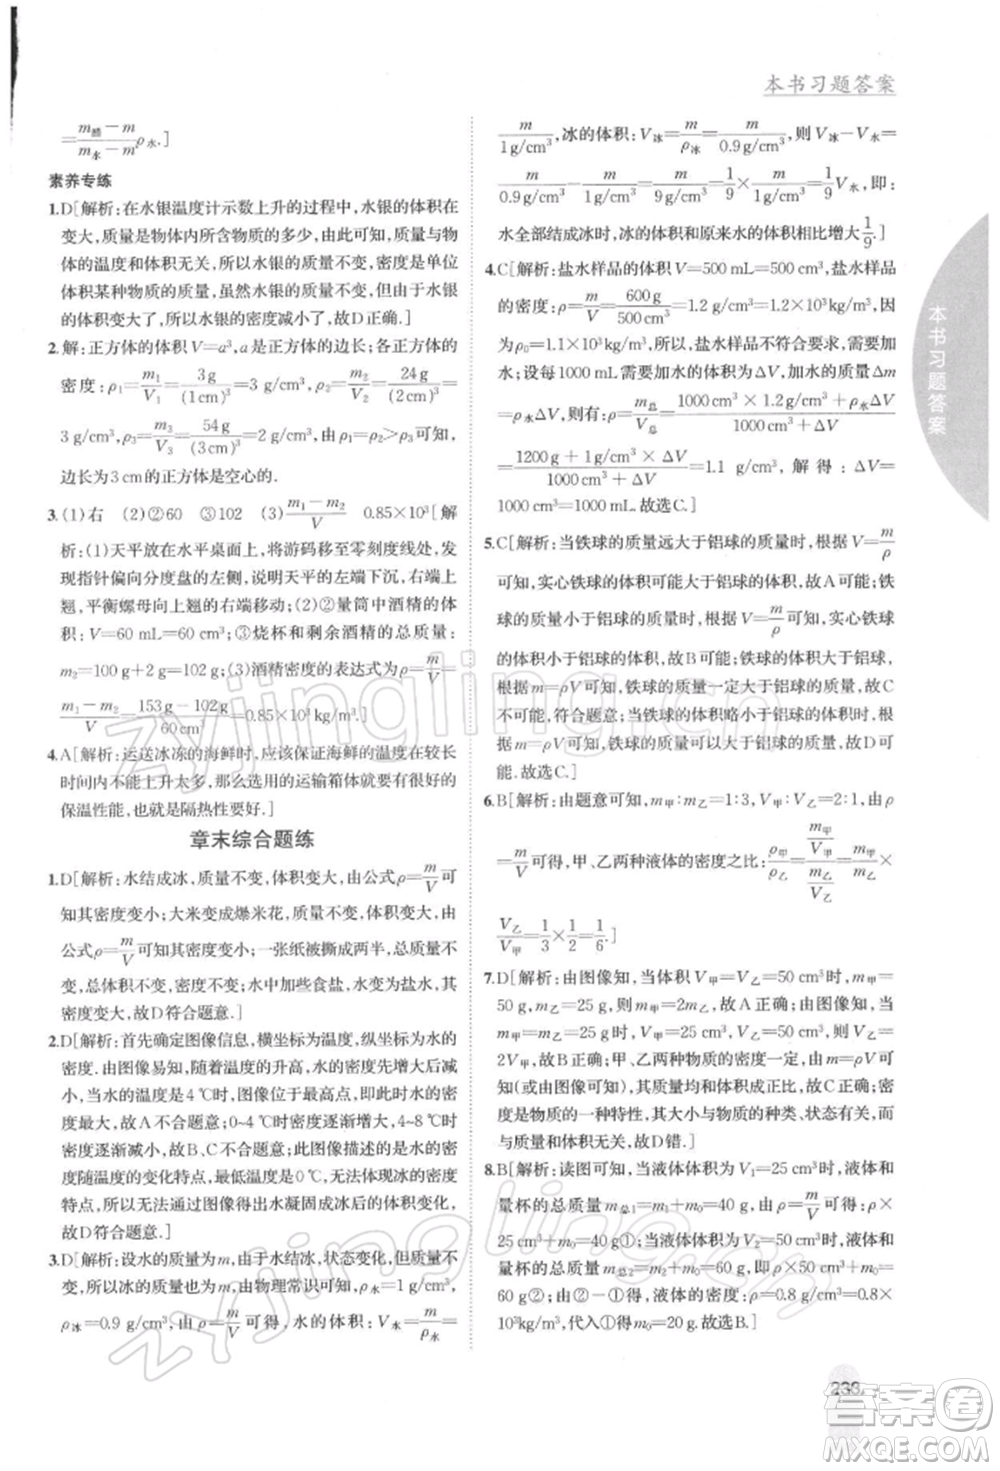 本书习题答案
=(m醋-m)/(m水-m)ρ水.]
素养专练
1.D[解析:在水银温度计示数上升的过程中,水银的体积在
变大,质量是物体内所含物质的多少,由此可知,质量与物体
的温度和体积无关,所以水银的质量不变,密度是单位
体积某种物质的质量,虽然水银的质量不变,但由于水银
的体积变大了,所以水银的密度减小了,故D正确.]
2.解:正方体的体积V=a³,a是正方体的边长;各正方体的
密度:ρ₁=m₁/V₁=3g/(1cm)³=3 g/cm³,ρ₂=m₂/V₂=24g/(2cm)³=
3 g/cm³,ρ₃=m₃/V₃=54g/(3cm)³=2 g/cm³,由ρ₁=ρ₂>ρ₃可知,
边长为3 cm的正方体是空心的.
3.(1)右 (2)②60 ③102 (3)(m₁-m₂)/V 0.85×10³[解
析:(1)天平放在水平桌面上,将游码移至零刻度线处,发
现指针偏向分度盘的左侧,说明天平的左端下沉,右端上
翘,平衡螺母向上翘的右端移动;(2)②量筒中酒精的体
积:V=60 mL=60 cm³;③烧杯和剩余酒精的总质量:
m₂=100 g+2 g=102 g;(3)酒精密度的表达式为ρ=m/V=
(m₁-m₂)/V=(153 g-102 g)/60 cm³=0.85×10³ kg/m³.]
4.A[解析:运送冰冻的海鲜时,应该保证海鲜的温度在较长
时间内不能上升太多,那么选用的运输箱体就要有很好的
保温性能,也就是隔热性要好.]
章末综合题练
1.D[解析:水结成冰,质量不变,体积变大,由公式ρ=m/V可
知其密度变小;大米变成爆米花,质量不变,体积变大,由
公式ρ=m/V可知其密度变小;一张纸被撕成两半,体积变
小,质量变小,密度不变;水中加些食盐,水变成盐水,密度
变大,故D符合题意.]
2.D[解析:首先确定图像信息,横坐标为温度,纵坐标为密
度.由图像易知,随着温度的升高,水的密度先变大后减
小,当水的温度是4 ℃时,图像位于最高点,即此时水的密
度最大,故A不合题意;0~4 ℃密度逐渐增大,4~8 ℃密
度逐渐减小,故B、C不合题意;此图像描述的是水的密
度随温度的变化特点,最低温度是0℃,无法体现冰的密度
特点,所以无法通过图像得出水凝固成冰后的体积变化,
故D符合题意.]
3.D[解析:设水的质量为m,由于水结冰,状态变化,但质量不
变,即冰的质量也为m,由物理常识可知,ρ水=1 g/cm³,
ρ冰=0.9 g/cm³,由ρ=m/V可得,水的体积:V水=m/ρ水=
m/(1g/cm³),冰的体积:V冰=m/ρ冰=m/(0.9g/cm³),则V冰-V水=
m/(0.9 g/cm³)-m/(1 g/cm³)=1/9×m/(1 g/cm³)=1/9V水,即:
水全部结成冰时,冰的体积和原来水的体积增大1/9.]
4.C[解析:盐水样品的体积V=500 mL=500 cm³,盐水样品
的密度:ρ=m/V=600 g/500 cm³=1.2 g/cm³=1.2×10³ kg/m³,
因为ρ₀=1.1×10³ kg/m³,所以,盐水样品不符合要求,要加
水;设每1000 mL需要加水的体积为ΔV,加水的质量Δm
=ρ水ΔV,则:ρ=m总/V总=(1000 cm³×1.2 g/cm³+ρ水ΔV)/(1000 cm³+ΔV)
=(1200 g+1 g/cm³×ΔV)/(1000 cm³+ΔV)=1.1 g/cm³,解得:ΔV=
1000 cm³=1000 mL.故选C.]
5.C[解析:当铁球的质量远大于铝球的质量时,根据V=m/ρ
可知,实心铁球的体积可能大于铝球的体积,故A可能;铁
球的质量略大于铝球的质量时,根据V=m/ρ可知,实心铁球
的体积小于铝球的体积,故B可能;铁球的体积大于铝球,
根据m=ρV可知,铁球的质量一定大于铝球的质量,故C
不可能,符合题意;当铁球的体积略小于铝球的体积时,根
据m=ρV可知,铁球的质量可以大于铝球的质量,故D可
能.故选C.]
6.B[解析:由题意可知,m甲:m乙=1:3,V甲:V乙=2:1,由ρ
=m/V可得,甲、乙两种液体的密度之比:ρ甲/ρ乙=(m甲/V甲)/(m乙/V乙)=m甲/m乙×
V乙/V甲=1/3×1/2=1/6.]
7.D[解析:由图像知,当体积V甲=V乙=50 cm³时,m甲=
50 g,m乙=25 g,所以m甲=2m乙,故A正确;当m甲=
m乙=25 g时,V甲=25 cm³,V乙=50 cm³,所以V乙=
2V甲,故B正确;甲、乙两种物质的密度一定,由ρ=m/V
知,物质的质量与体积成正比,故C正确;密度
是物质的一种特性,其大小与物质的种类、状态有关,
与质量和体积无关,故D错.]
8.B[解析:读图可知,当液体体积为V₁=25 cm³时,液体和
量杯的总质量m总1=m₁+m₀=40 g,由ρ=m/V可得:ρ×
25 cm³+m₀=40 g①;当液体体积为V₂=50 cm³时,液体和
量杯的总质量m总2=m₂+m₀=60 g,即ρ×50 cm³+m₀=
60 g②,由①②可得,液体的密度:ρ=0.8 g/cm³=0.8×
10³kg/m³,代入①得m₀=20 g.故选B.]
本书习题答案
233
zyjingling.cn
zyjingling.cn
答案圈
MXQE.COM